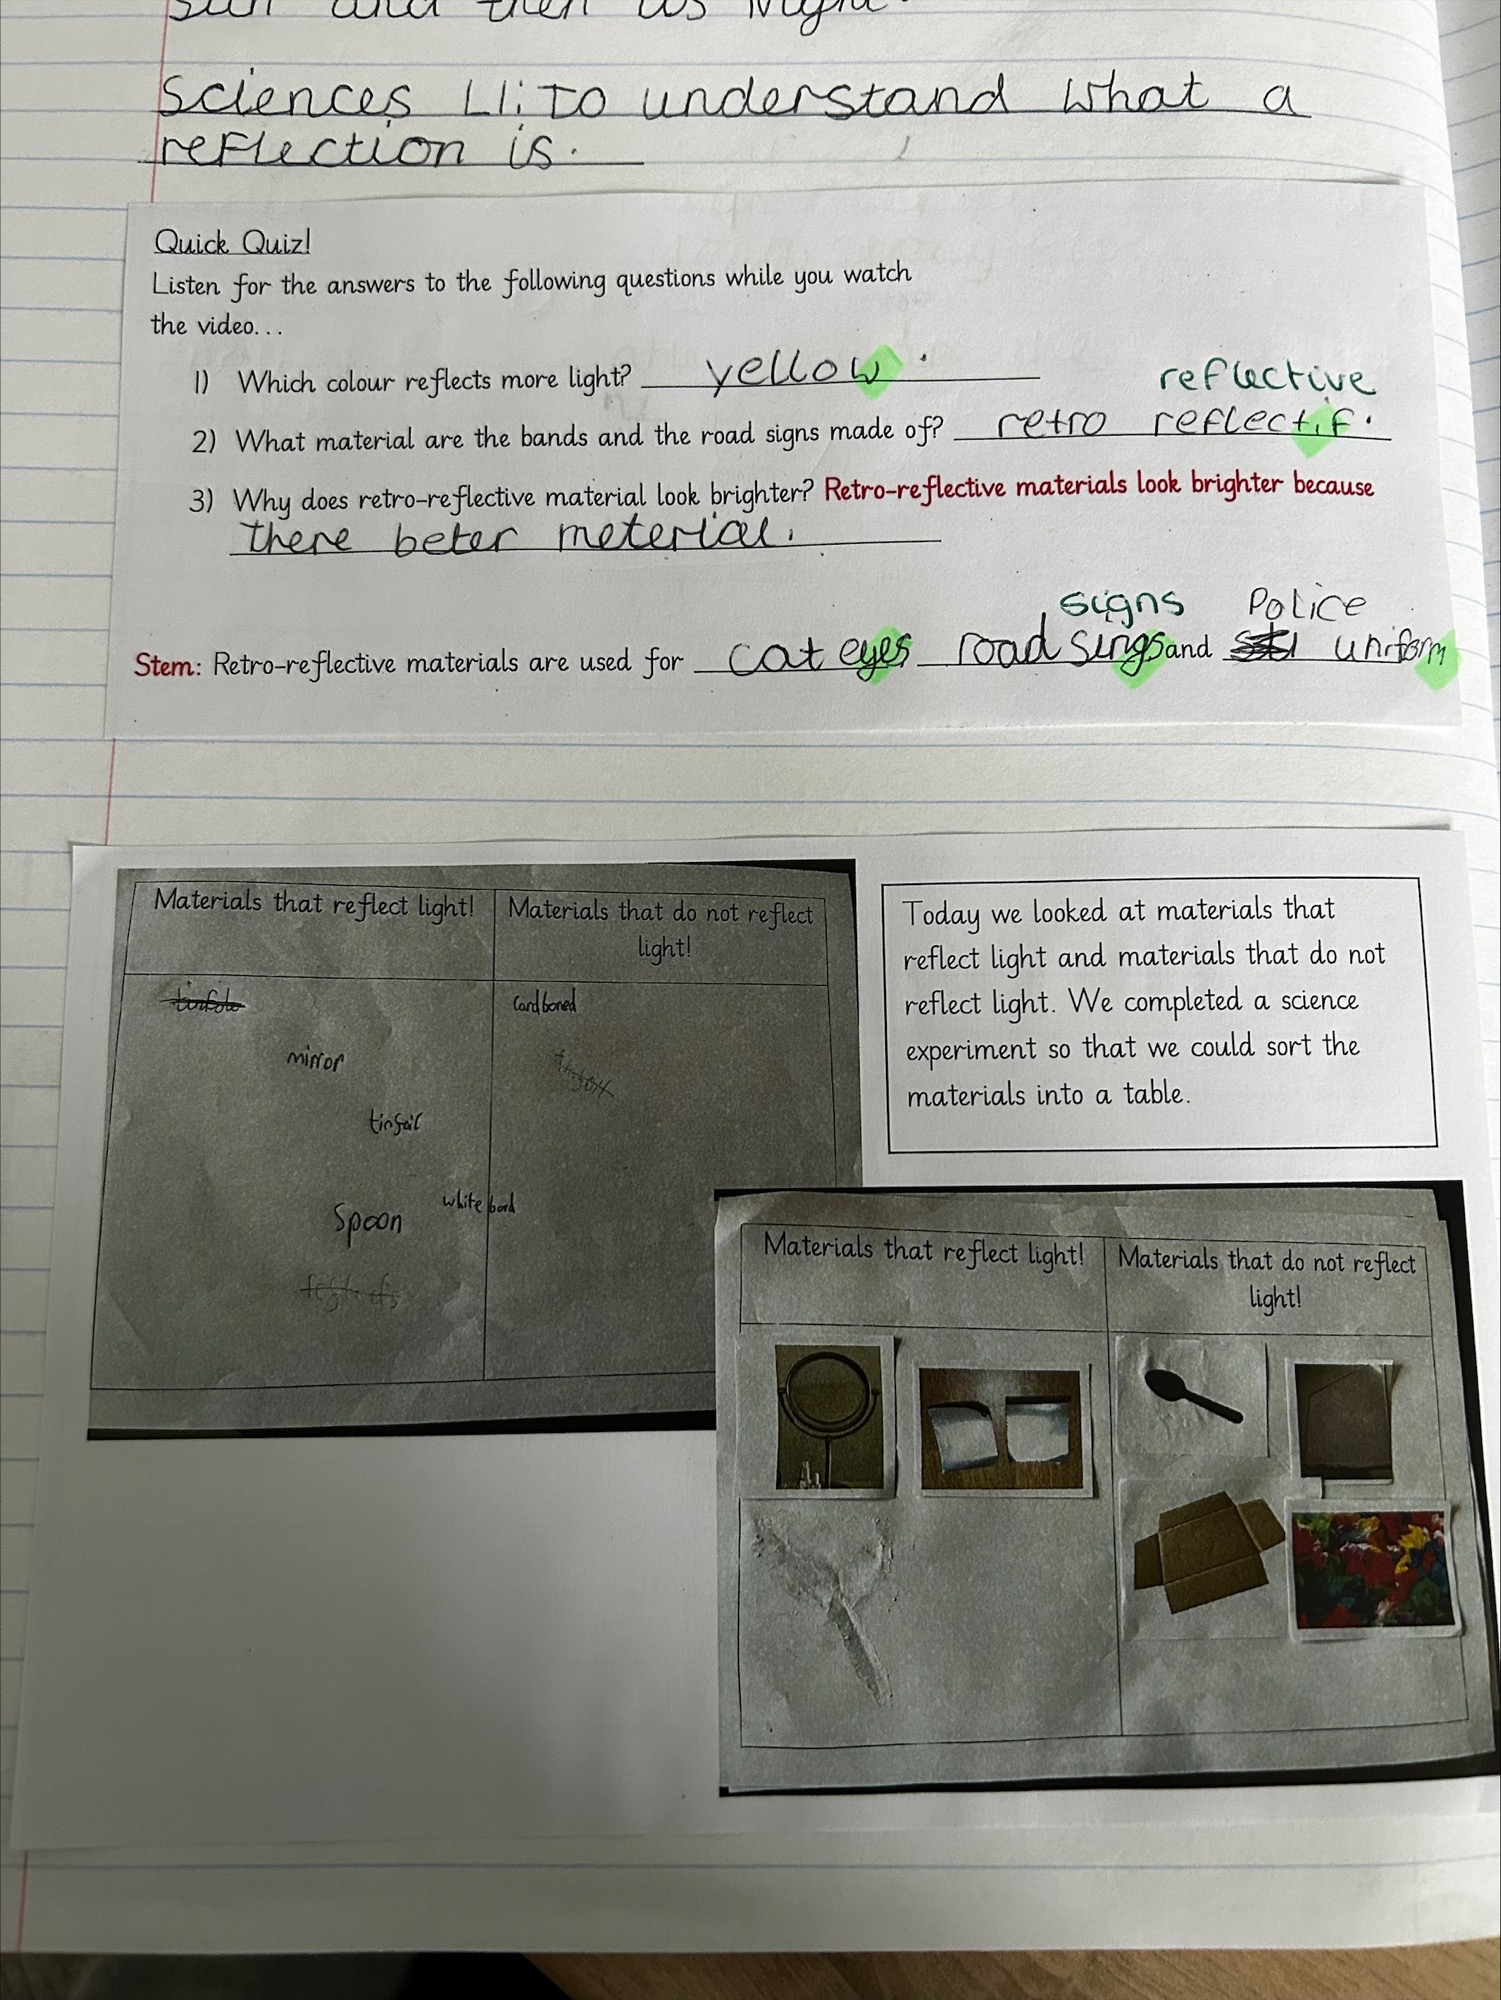 sun and then its night.
Sciences LI: To understand what a
reflection is.
Quick Quiz!
Listen for the answers to the following questions while you watch
the video...
1) Which colour reflects more light? yellow.
reflective
2) What material are the bands and the road signs made of? retro reflectif.
3) Why does retro-reflective material look brighter? Retro-reflective materials look brighter because
there beter meterial.
signs Police
Stem: Retro-reflective materials are used for cat eyes road sings and uniform
Materials that reflect light!
Materials that do not reflect
light!
mirror
tinfoil
Spoon
white bord
Cardboned
Today we looked at materials that
reflect light and materials that do not
reflect light. We completed a science
experiment so that we could sort the
materials into a table.
Materials that reflect light!
Materials that do not reflect
light!